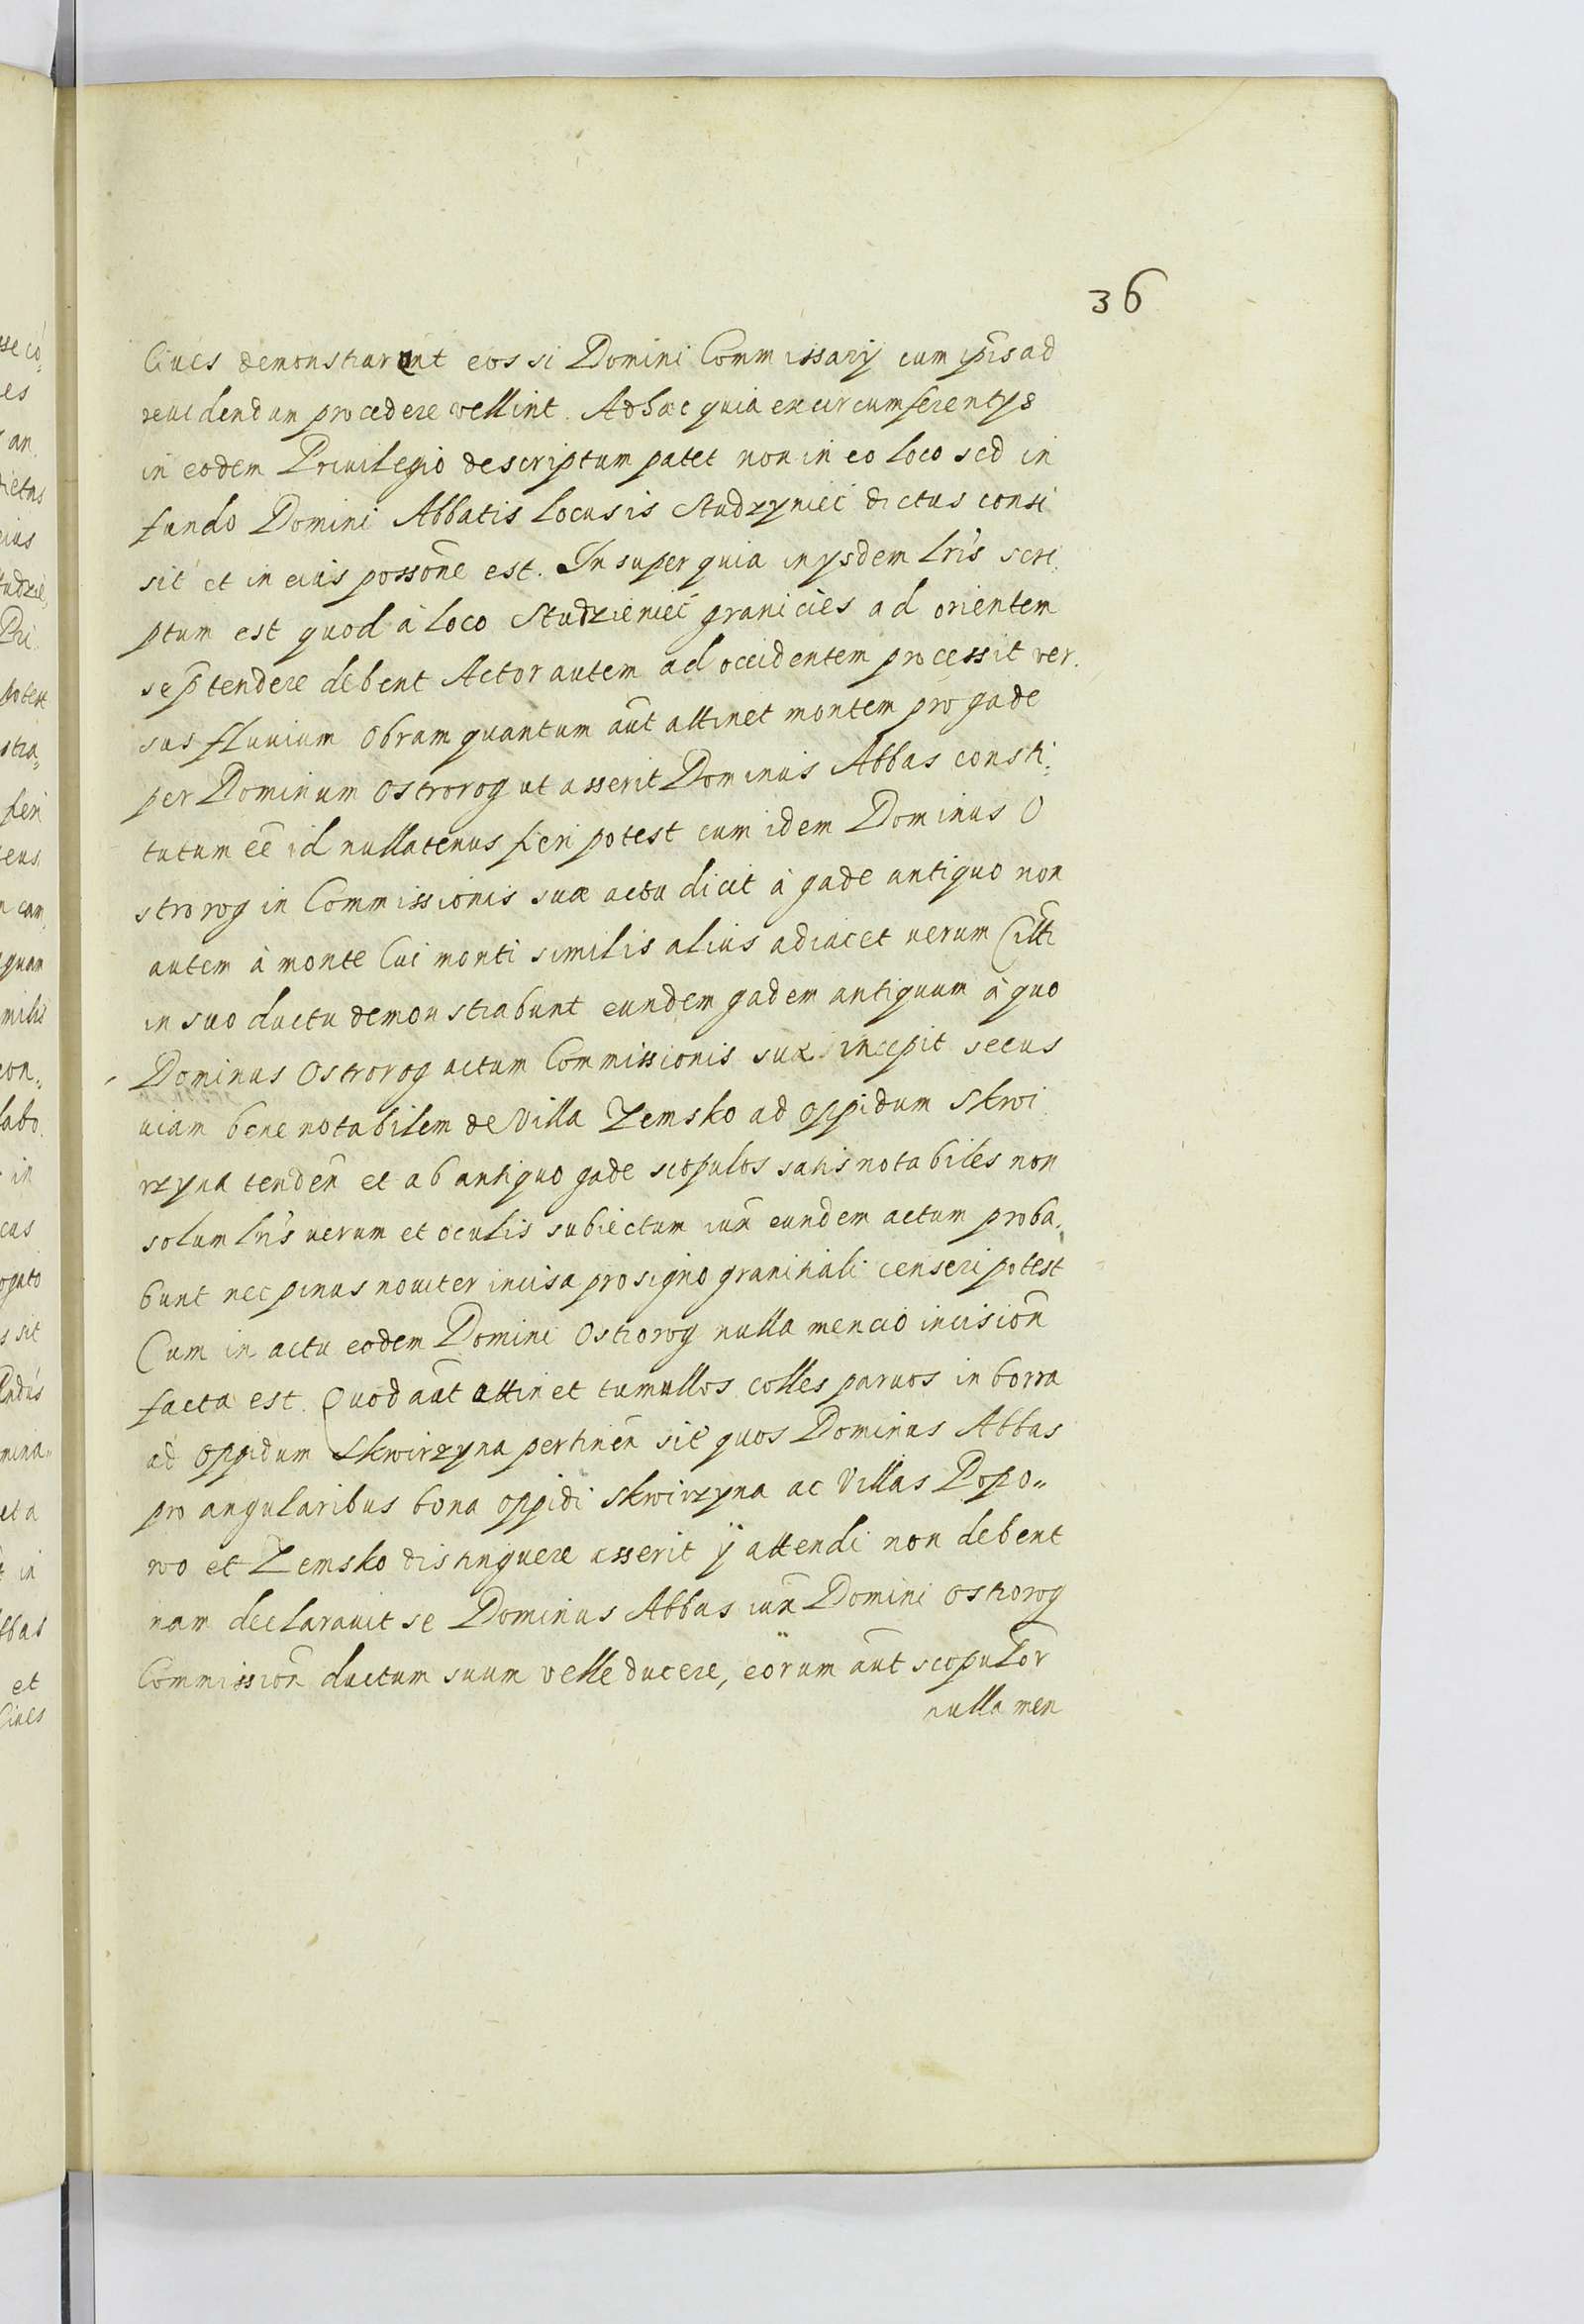 36
Ciues demonstrarunt eos si Domini Commissarij cum ipsis ad
reuidendum procedere vellint. Ad hæc quia ex circumferentys
in eodem Priuilegio descriptum patet non in eo loco sed in
fundo Domini Abbatis locus is Studzyniec dictus consi
sit et in eius possone est. In super quia in ysdem lris scri,
ptum est quod à loco Studzieniec granicies ad orientem
se ptendere debent Actor autem ad occidentem processit ver.
sus fluuium Obram quantum aut attinet montem pro gade
per Dominum Ostrorog ut asserit Dominus Abbas consti:
tutum eé id nullatenus fieri potest cum idem Dominus O
strorog in Commissionis suæ actu dicit à gade antiquo non
autem à monte Cui monti similis alius adiacet uerum Citti
in suo ductu demonstrabunt eundem gadem antiquum à quo
Dominus Ostrorog actum Commissionis suæ incepit secus
uiam bene notabilem de Villa Zemsko ad oppidum Skwi
rzyna tenden et ab antiquo gade scopulos satis notabiles non
solum lris uerum et oculis subiectum iux eundem actum proba,
bunt nec pinus nouiter incisa pro signo granitiali censeri potest
Cum in actu eodem Domini Ostrorog nulla mencio incision
facta est. Quod aut attinet tumullos colles paruos in borra
ad oppidum Skwirzyna pertinen sit quos Dominus Abbas
pro angularibus bona oppidi Skwirzyna ac Villas Popo„
wo et Zemsko distinguere asserit ÿ attendi non debent
nam declarauit se Dominus Abbas iux Domini Ostrorog
Commission ductum suum velle ducere, eorum aut scopulor
nulla men